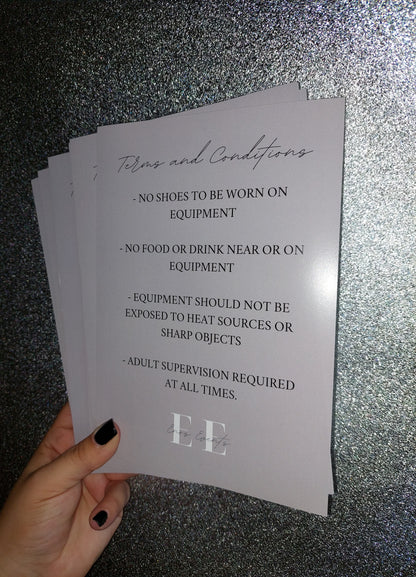 Terms and Conditions
- NO SHOES TO BE WORN ON
EQUIPMENT
- NO FOOD OR DRINK NEAR OR ON
EQUIPMENT
- EQUIPMENT SHOULD NOT BE
EXPOSED TO HEAT SOURCES OR
SHARP OBJECTS
- ADULT SUPERVISION REQUIRED
AT ALL TIMES.
EE
Events